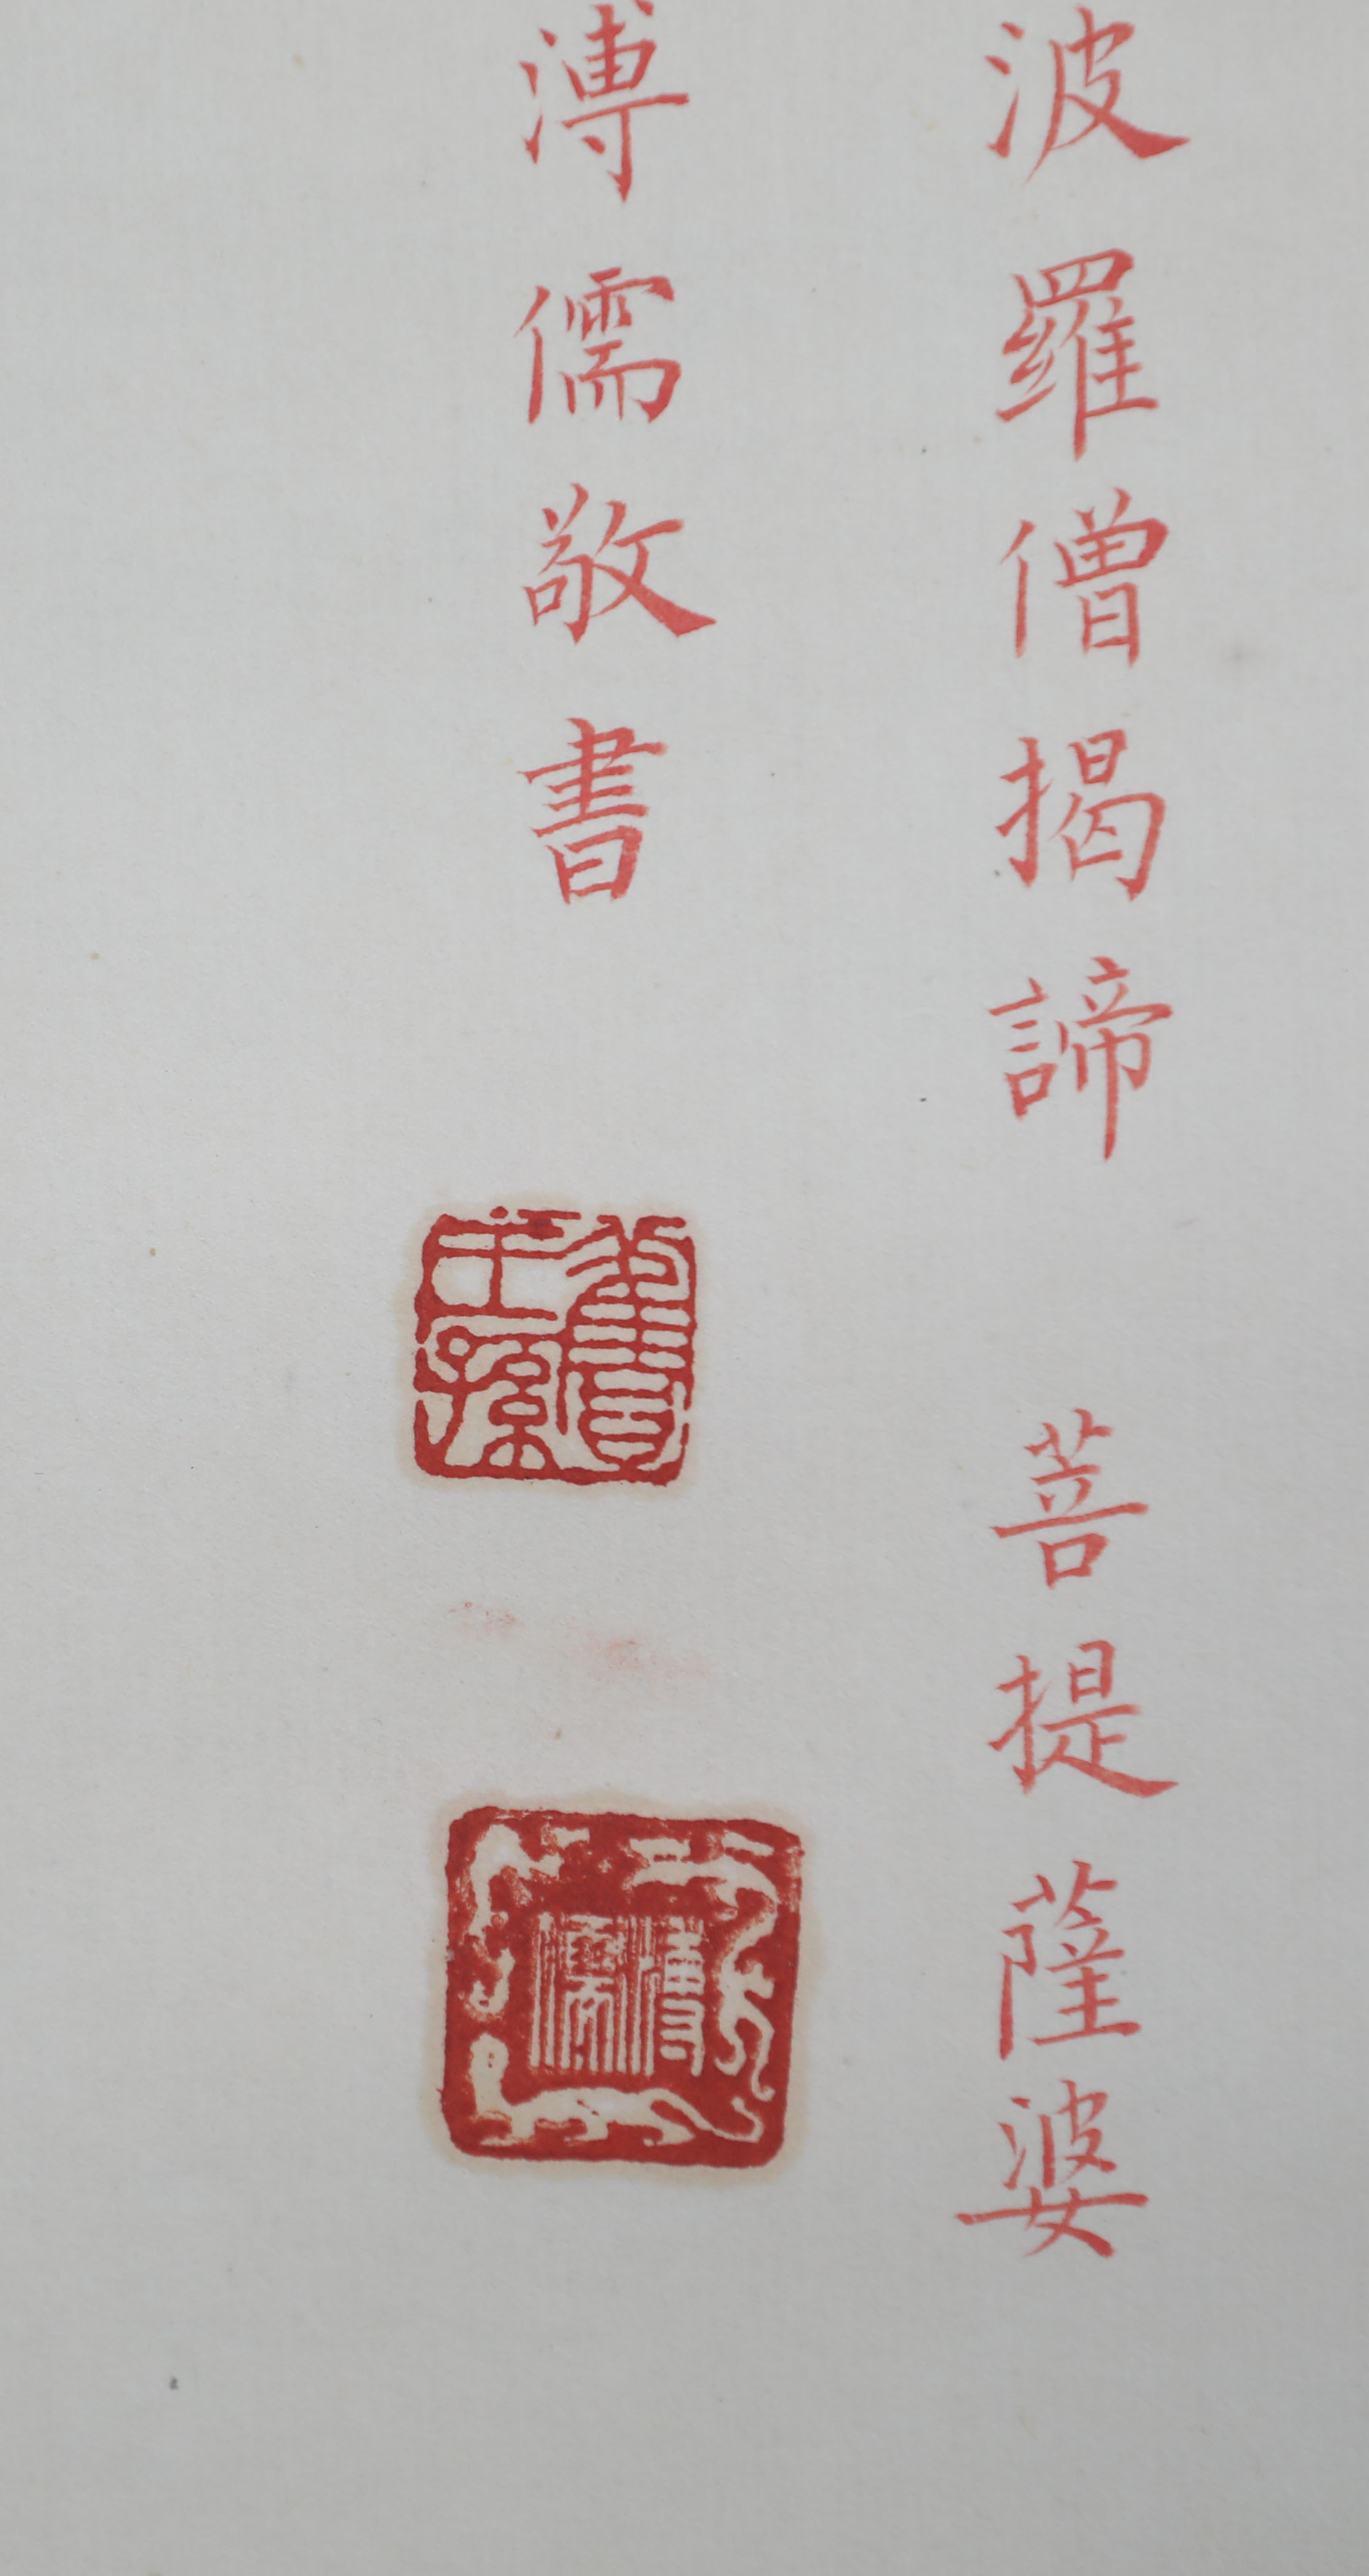 波羅僧揭諦 菩提薩婆
溥儒敬書
舊王孫
溥儒